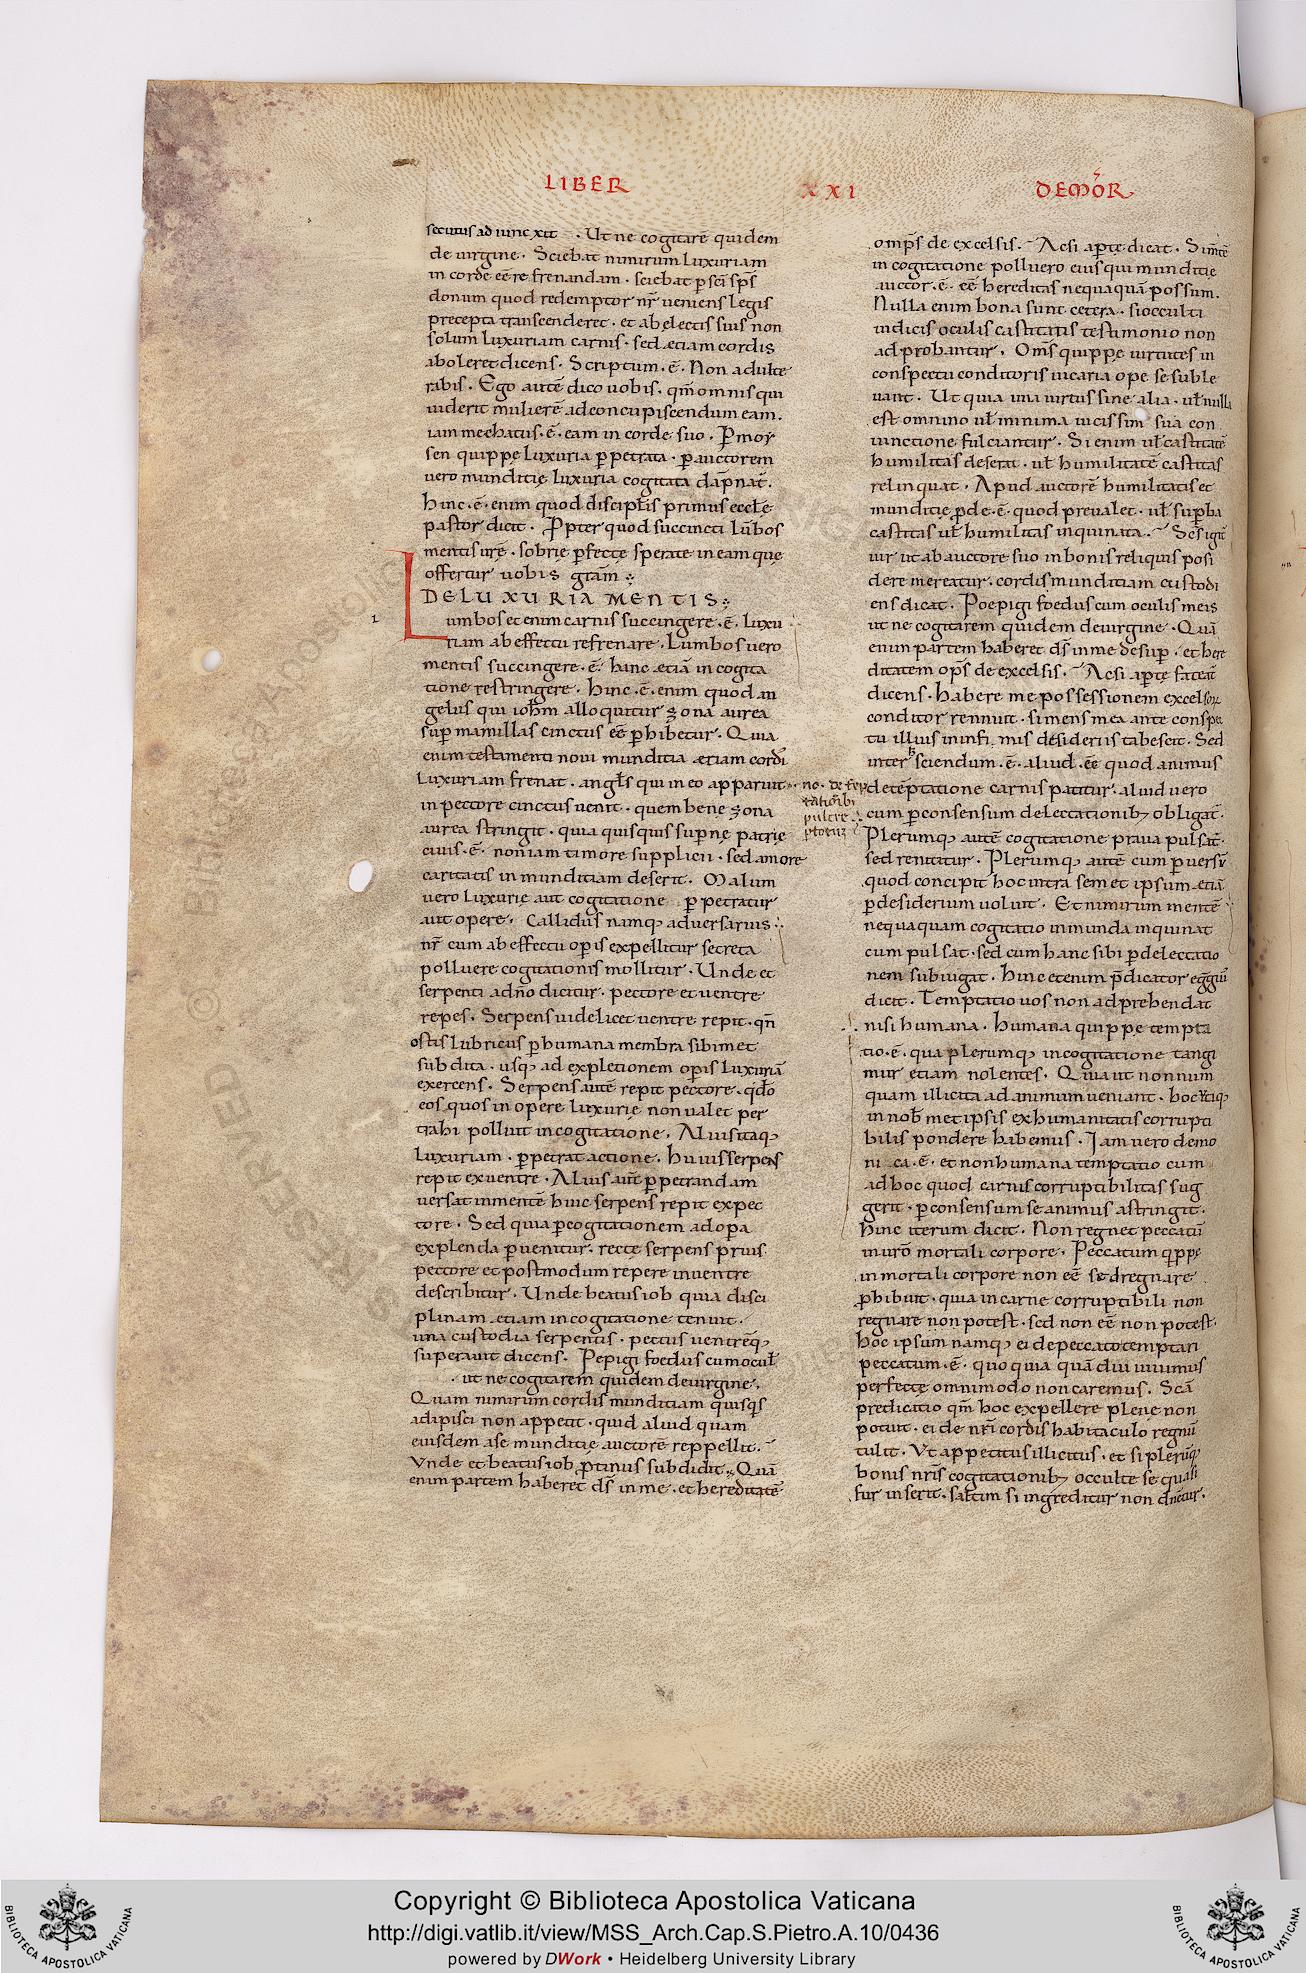 LIBER XXI DEMOR̄
secutus adiunc xit · Ut ne cogitarē quidem
de uirgine · Sciebat nimirum luxuriam
in corde eē re frenandam · sciebat p̄ sc̄i sp̄s
donum quod redemptor nr̄ ueniens legis
precepta transcenderet · et ab electis suis non
solum luxuriam carnis · sed etiam cordis
aboleret dicens · Scriptum · ē · Non adulte
rabis · Ego autē dico uobis · qm̄ omnis qui
uiderit mulierē ad concupiscendum eam ·
iam mechatus · ē · eam in corde suo · P̄ moy
sen quippe luxuria p̄petrata · p̄ auctorem
uero munditię luxuria cogitata dāpnat̄ ·
hinc · ē · enim quod discipl̄is primus eccl̄e
pastor dicit · Ppter quod succincti lūbos
mentis urē · sobrię p̄fectę sperate in eam quę
offertur uobis gr̄am
DE LUXURIA MENTIS
Lumbos et enim carnis succingere · ē · luxu
riam ab effectu refrenare · Lumbos uero
mentis succingere · ē · hanc etiā in cogita
tione restringere · hinc · ē · enim quod an
gelus qui ioh̄m alloquitur zona aurea
sup̄ mamillas cinctus eē p̄hibetur · Quia
enim testamenti noui munditia etiam cordi
luxuriam frenat · angl̄s qui in eo apparuit
in pectore cinctus uenit · quem bene zona
aurea stringit · quia quisquis sup̄nę patrię
ciuis · ē · non iam timore supplicii · sed amore
caritatis in munditiam deserit · Malum
uero luxurię aut cogitatione p̄petratur
aut opere · Callidus namq; aduersarius
nr̄ cum ab effectu op̄is expellitur secreta
polluere cogitationis mollitur · Unde et
serpenti a dn̄o dicitur · pectore et uentre
repes · Serpens uidelicet uentre repit · qn̄
ostis lubricus p̄ humana membra sibimet
subdita · usq; ad expletionem op̄is luxuriā
exercens · Serpens autē repit pectore · qd̄o
eos quos in opere luxurię non ualet per
trahi polluit in cogitatione · Alius itaq;
luxuriam · p̄petrat actione · huius serpens
repit ex uentre · Alius aut̄ p̄petrandam
uersat in mentē hinc serpens repit ex pec
tore · Sed quia p̄ cogitationem ad opa
explenda p̄uenitur · recte serpens prius
pectore et postmodum repere in uentre
describitur · Unde beatus iob quia disci
plinam etiam in cogitatione tenuit ·
una custodia serpentis · pectus uentrēq;
superauit dicens · Pepigi foedus cum ocul̄
ut ne cogitarem quidem de uirgine ·
Quam nimirum cordis munditiam quisq̄s
adipisci non appetit · quid aliud quam
eiusdem a se munditię auctorē reppellit ·
Unde et beatus iob p̄tinus subdidit · Quā
enim partem haberet ds̄ in me · et hereditatē
omp̄s de excelsis · Acsi ap̄te dicat · Si m̄tē
in cogitatione polluero eius qui munditię
auctor · ē · eē hereditas nequaquā possum ·
Nulla enim bona sunt cetera · si occulti
iudicis oculis castitatis testimonio non
adprobantur · Om̄s quippe uirtutes in
conspectu conditoris uicaria ope se suble
uant · Ut quia una uirtus sine alia · ul̄ nulla
est omnino ul̄ minima uicissim sua con
iunctione fulciantur · Si enim ul̄ castitatē
humilitas deserat · ul̄ humilitatē castitas
relinquat · Apud auctorē humilitatis et
munditię p̄de · ē · quod preualet · ul̄ sup̄ba
castitas ul̄ humilitas inquinata · Sc̄s igit̄
uir ut ab auctore suo in bonis reliquis posi
dere mereatur · cordis munditiam custodi
ens dicat · Poepigi foedus cum oculis meis
ut ne cogitarem quidem de uirgine · Quā
enim partem haberet ds̄ in me desup̄ · et here
ditatem op̄s de excelsis · Acsi ap̄te fateat̄
dicens · habere me possessionem excelsoꝝ
conditor rennuit · si mens mea ante conspec
tu illius in infi mis desideriis tabescit · Sed
inter h̄ sciendum · ē · aliud · eē quod animus
de tēptatione carnis patitur · aliud uero
cum p̄ consensum delectationib; obligat̄ ·
Plerumq; autē cogitatione praua pulsat̄ ·
sed renitatur · Plerumq; autē cum p̄uersū
quod concipit hoc intra semet ipsum etiā
p̄ desiderium uoluit · Et nimirum mentē
nequaquam cogitatio inmunda inquinat
cum pulsat · sed cum hanc sibi p̄ delectatio
nem subiugat · hinc etenim p̄dicator egḡius
dicit · Temptatio uos non adprehendat
nisi humana · humana quippe tempta
tio · ē · qua plerumq; in cogitatione tangi
mur etiam nolentes · Quia ut nonnum
quam illicita ad animum ueniant · hoc utiq;
in nob̄ met ipsis ex humanitatis corrupti
bilis pondere habemus · Iam uero demo
ni ca · ē · et non humana temptatio cum
ad hoc quod carnis corruptibilitas sug
gerit · p̄ consensum se animus astringit ·
hinc iterum dicit · Non regnet peccatū
in urō mortali corpore · Peccatum q̄ppe
in mortali corpore non eē sed regnare
p̄hibuit · quia in carne corruptibili non
regnare non potest · sed non eē non potest ·
hoc ipsum namq; ei de peccato temptari
peccatum · ē · quo quia quā diu uiuimus
perfectę omnimodo non caremus · Scā
predicatio qm̄ hoc expellere plene non
potuit · ei de nr̄i cordis habitaculo regnū
tulit · Ut appetitus illicitus · et si plerūq;
bonis nr̄is cogitationib; occulte se quasi
fur inserit · saltim si ingreditur non dn̄etur ·
Copyright © Biblioteca Apostolica Vaticana
http://digi.vatlib.it/view/MSS_Arch.Cap.S.Pietro.A.10/0436
powered by DWork • Heidelberg University Library
BIBLIOTECA APOSTOLICA VATICANA
BIBLIOTECA APOSTOLICA VATICANA